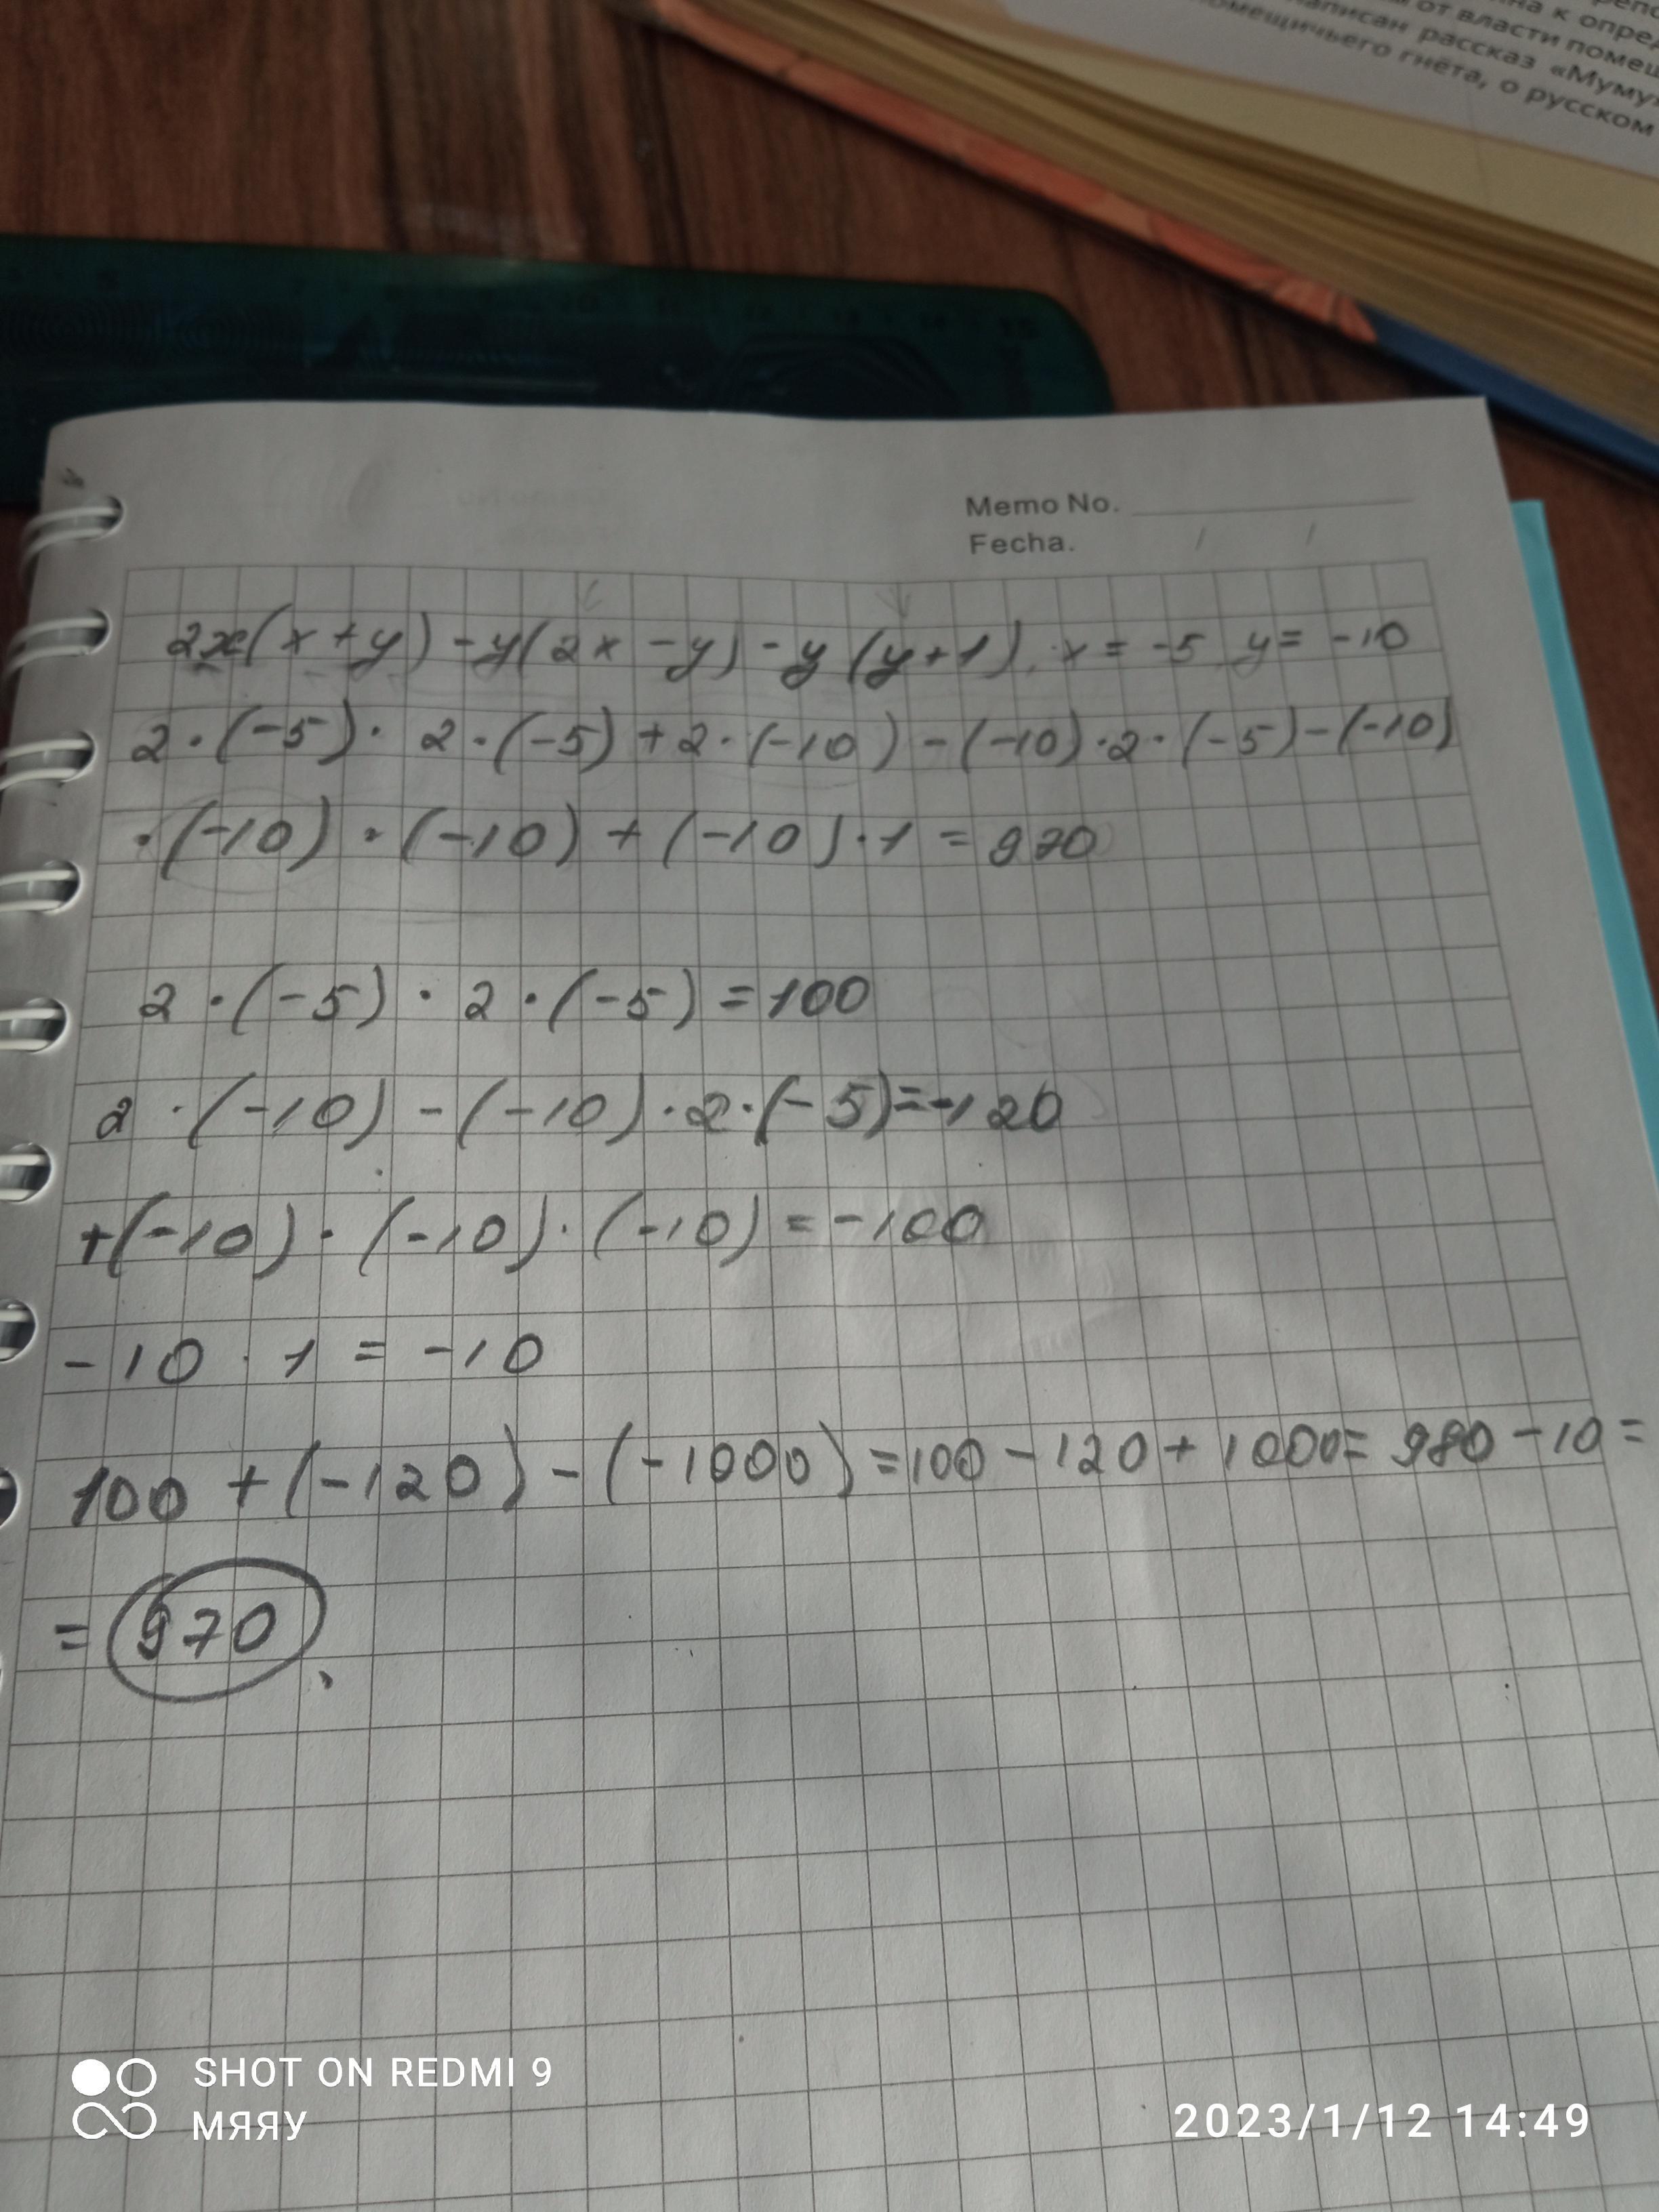 на к опред
от власти помещ
написан рассказ «Муму»
помещичьего гнёта, о русском
Memo No.
Fecha. / /
2x(x+y)-y(2x-y)-y(y+1), x=-5 y=-10
2·(-5)·2·(-5)+2·(-10)-(-10)·2·(-5)-(-10)
·(-10)·(-10)+(-10)·1=970
2·(-5)·2·(-5)=100
2·(-10)-(-10)·2·(-5)=-120
+(-10)·(-10)·(-10)=-100
-10·1=-10
100+(-120)-(-1000)=100-120+1000=980-10=
=970
SHOT ON REDMI 9
МЯЯУ
2023/1/12 14:49